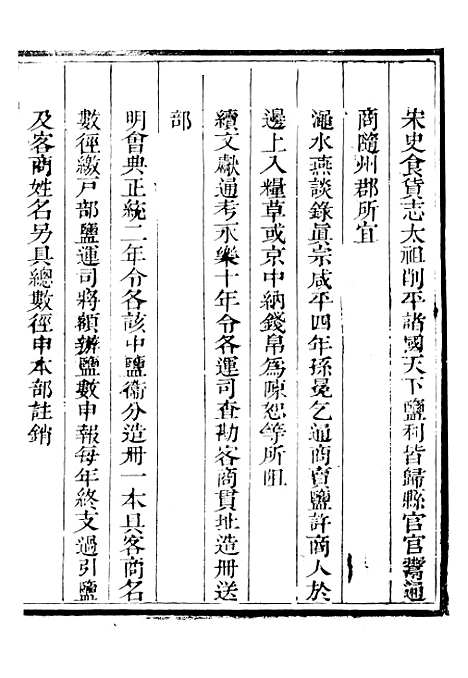 宋史食貨志太祖削平諸國天下鹽利皆歸縣官官鬻通
商隨州郡所宜
澠水燕談錄眞宗咸平四年孫冕乞通商賣鹽許商人於
邊上入糧草或京中納錢帛爲陳恕等所阻
續文獻通考永樂十年令各運司查勘客商貫址造冊送
部
明會典正統二年令各該中鹽衞分造冊一本具客商名
數徑繳戸部鹽運司將額辦鹽數申報每年終支過引鹽
及客商姓名另具總數徑申本部註銷